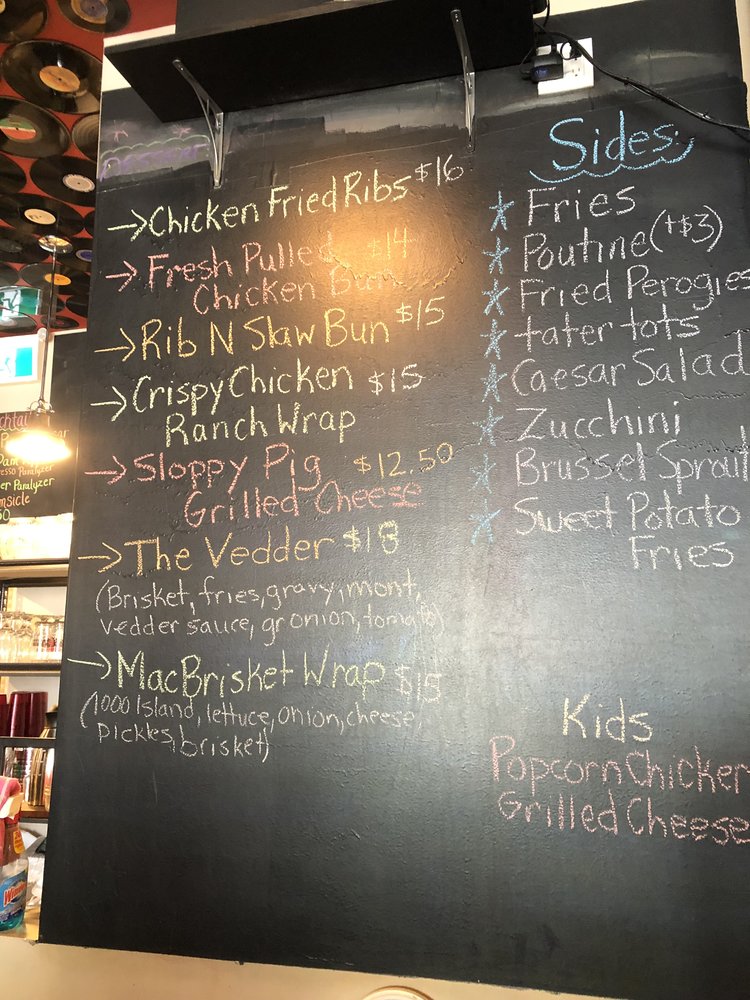 →Chicken Fried Ribs $16
→Fresh Pulled $14
Chicken Bun
→Rib N Slaw Bun $15
→Crispy Chicken $15
Ranch Wrap
→Sloppy Pig $12.50
Grilled Cheese
→The Vedder $18
(Brisket, fries, gravy, mont,
vedder sauce, gr onion, tomato)
→MacBrisket Wrap $15
(1000 Island, lettuce, onion, cheese,
pickles, brisket)
Sides:
Fries
Poutine (+$3)
Fried Perogies
tater tots
Caesar Salad
Zucchini
Brussel Sprout
Sweet Potato
Fries
Kids
Popcorn Chicken
Grilled Cheese
Paralyzer
Paralyzer